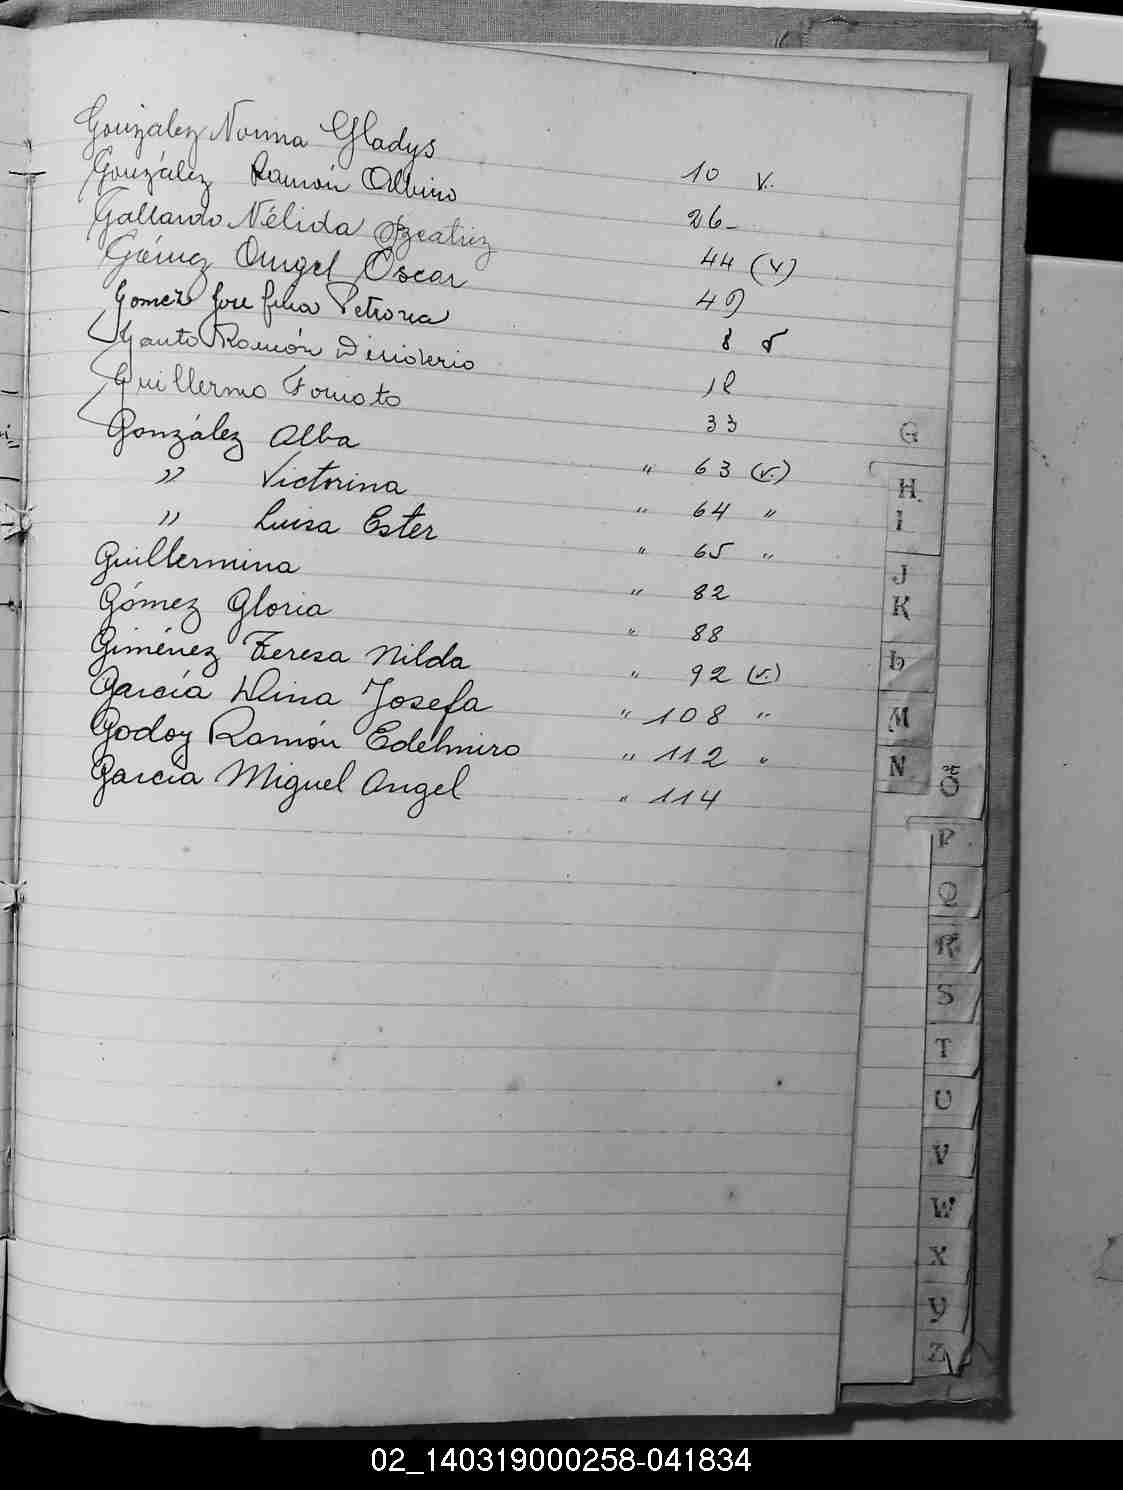 González Norma Gladys 10 v.
González Ramón Albino 26-
Gallardo Nélida Beatriz 44 (v)
Gómez Angel Oscar 49
Gomez Josefina Petrona 8
Ramón 12
Guillermo 33
González Alba " 63 (v.)
" Victorina " 64 "
" Luisa Ester " 65 "
Guillermina " 82
Gómez Gloria " 88
Giménez Teresa Nilda " 92 (v.)
García Dina Josefa " 108 "
Godoy Ramón Edelmiro " 112 "
García Miguel Angel " 114
G
H.
I
J
K
L
M
N
Ñ
O
P
Q
R
S
T
U
V
W
X
Y
Z
02_140319000258-041834